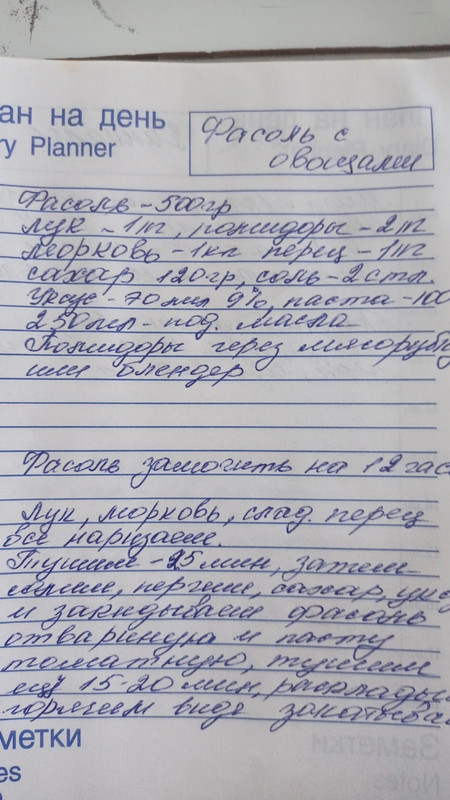 ан на день
ry Planner
Фасоль с
овощами
Фасоль - 500гр
лук - 1кг, помидоры - 2кг
морковь - 1кг перец - 1кг
сахар 120гр, соль - 2 стл.
Уксус - 70мл 9%, паста - 100
250мл - под. масла
Помидоры через мясоруб
или блендер
Фасоль замочить на 12 час
лук, морковь, слад. перец
все нарезаем.
Тушим - 25 мин, затем
перчим, сахар, укс
и закидываем фасоль
отвариную и пасту
томатную, тушим
ещё 15-20 мин, расклады
горячем виде закатыва
метки
es
Заметки
Notes